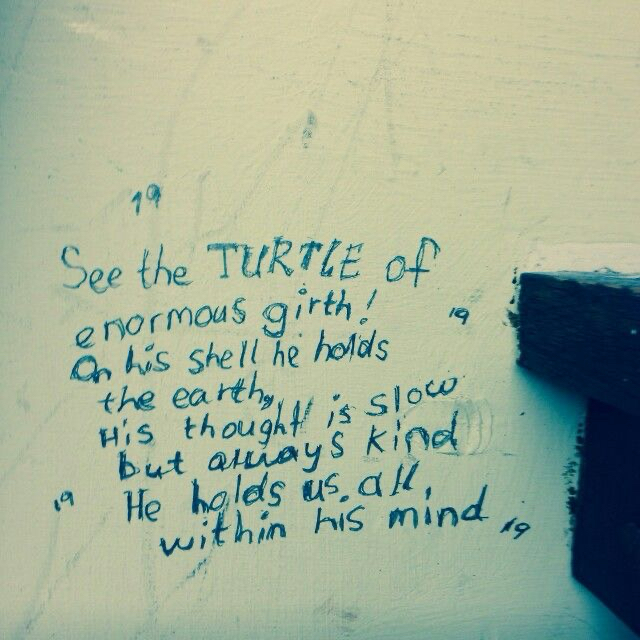 19
See the TURTLE of
enormous girth!
19
On his shell he holds
the earth,
His thought is slow
but always kind
19
He holds us all
within his mind
19